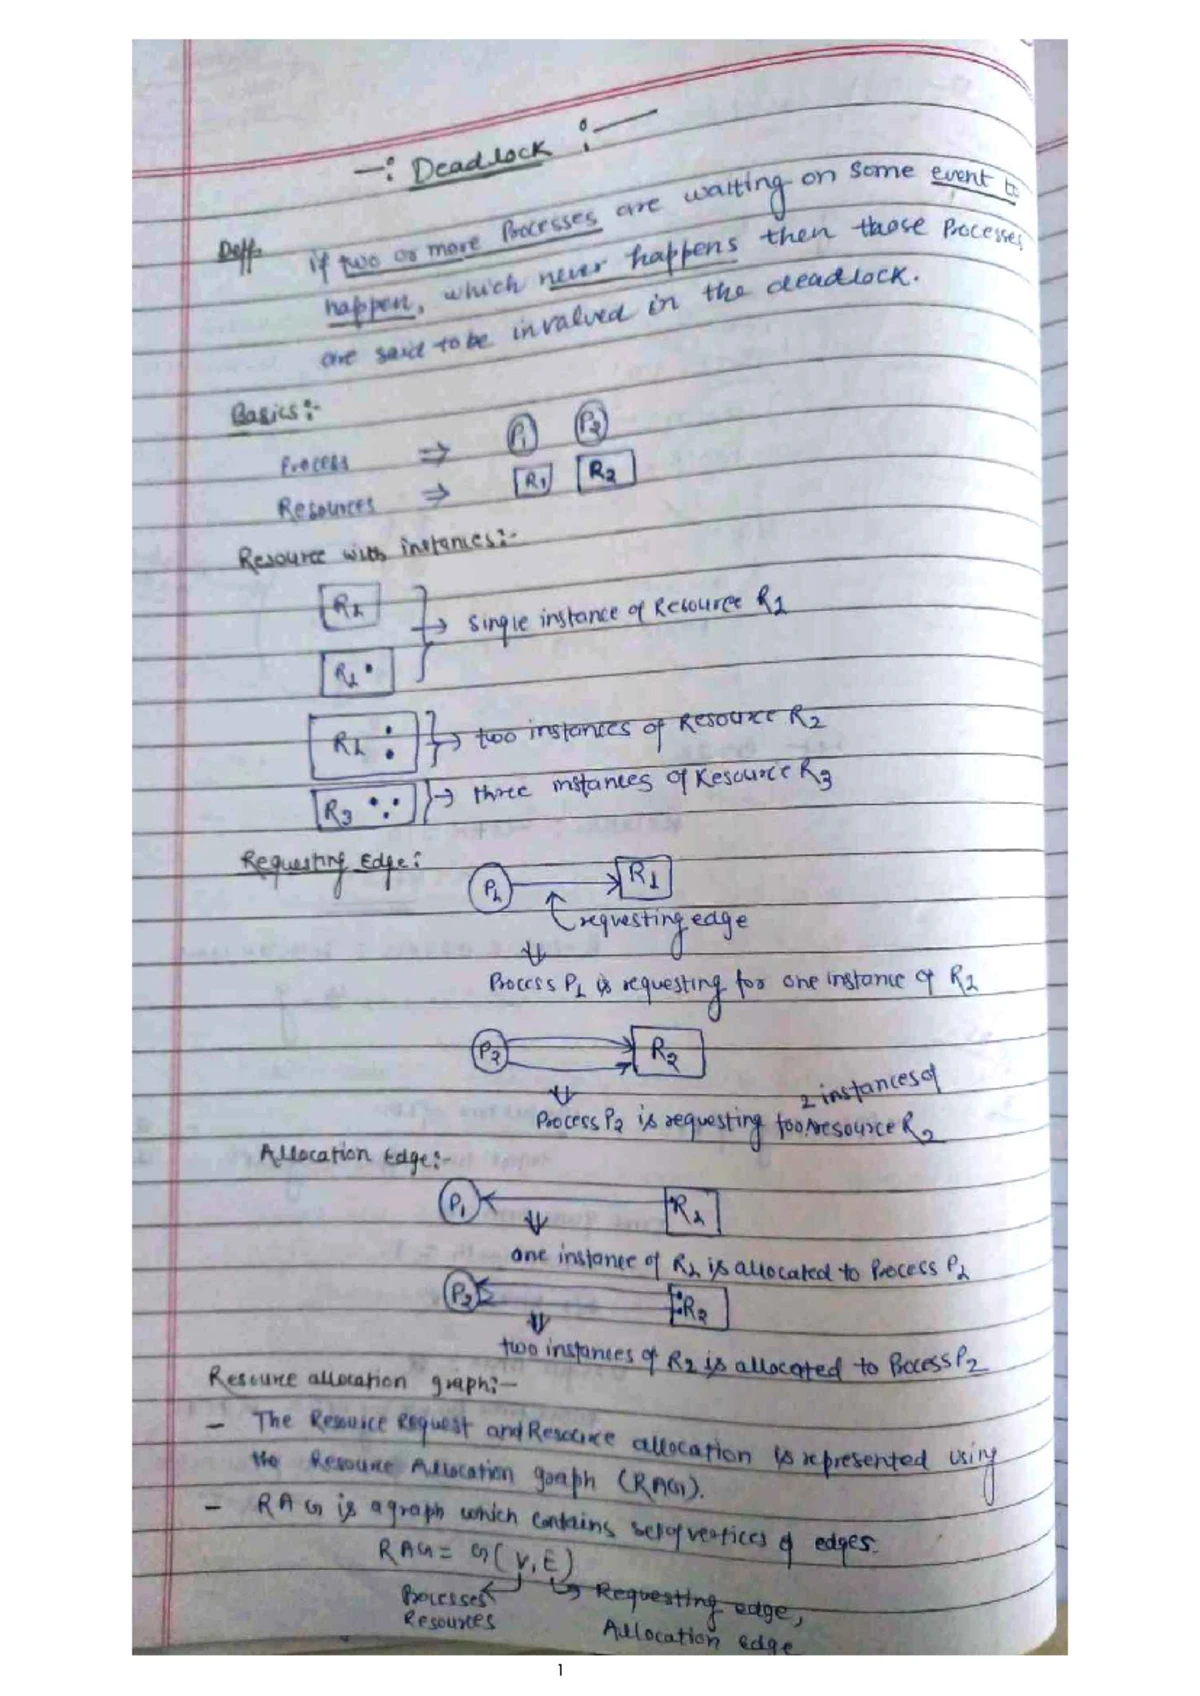 -: Deadlock :-
Deff. if two or more Processes are waiting on some event to
happen, which never happens then those Processes
are said to be invalved in the deadlock.
Basics:-
Process ⇒ P1 P2
Resources ⇒ R1 R2
Resource with instances:-
R1
→ single instance of Resource R1
R1
R2 → two instances of Resource R2
R3 → three instances of Resource R3
Requesting Edge:
P1 R1
requesting edge
⇓
Process P1 is requesting for one instance of R1
P2 R2
⇓
2 instances of
Process P2 is requesting for resource R2
Allocation Edge:-
P1 R1
⇓
one instance of R1 is allocated to Process P1
P2 R2
⇓
two instances of R2 is allocated to Process P2
Resource allocation graph:-
- The Resource Request and Resource allocation is represented using
the Resource Allocation graph (RAG).
- RAG is a graph which contains set of vertices & edges.
RAG = G(V, E)
Processes Requesting edge,
Resources Allocation edge
1